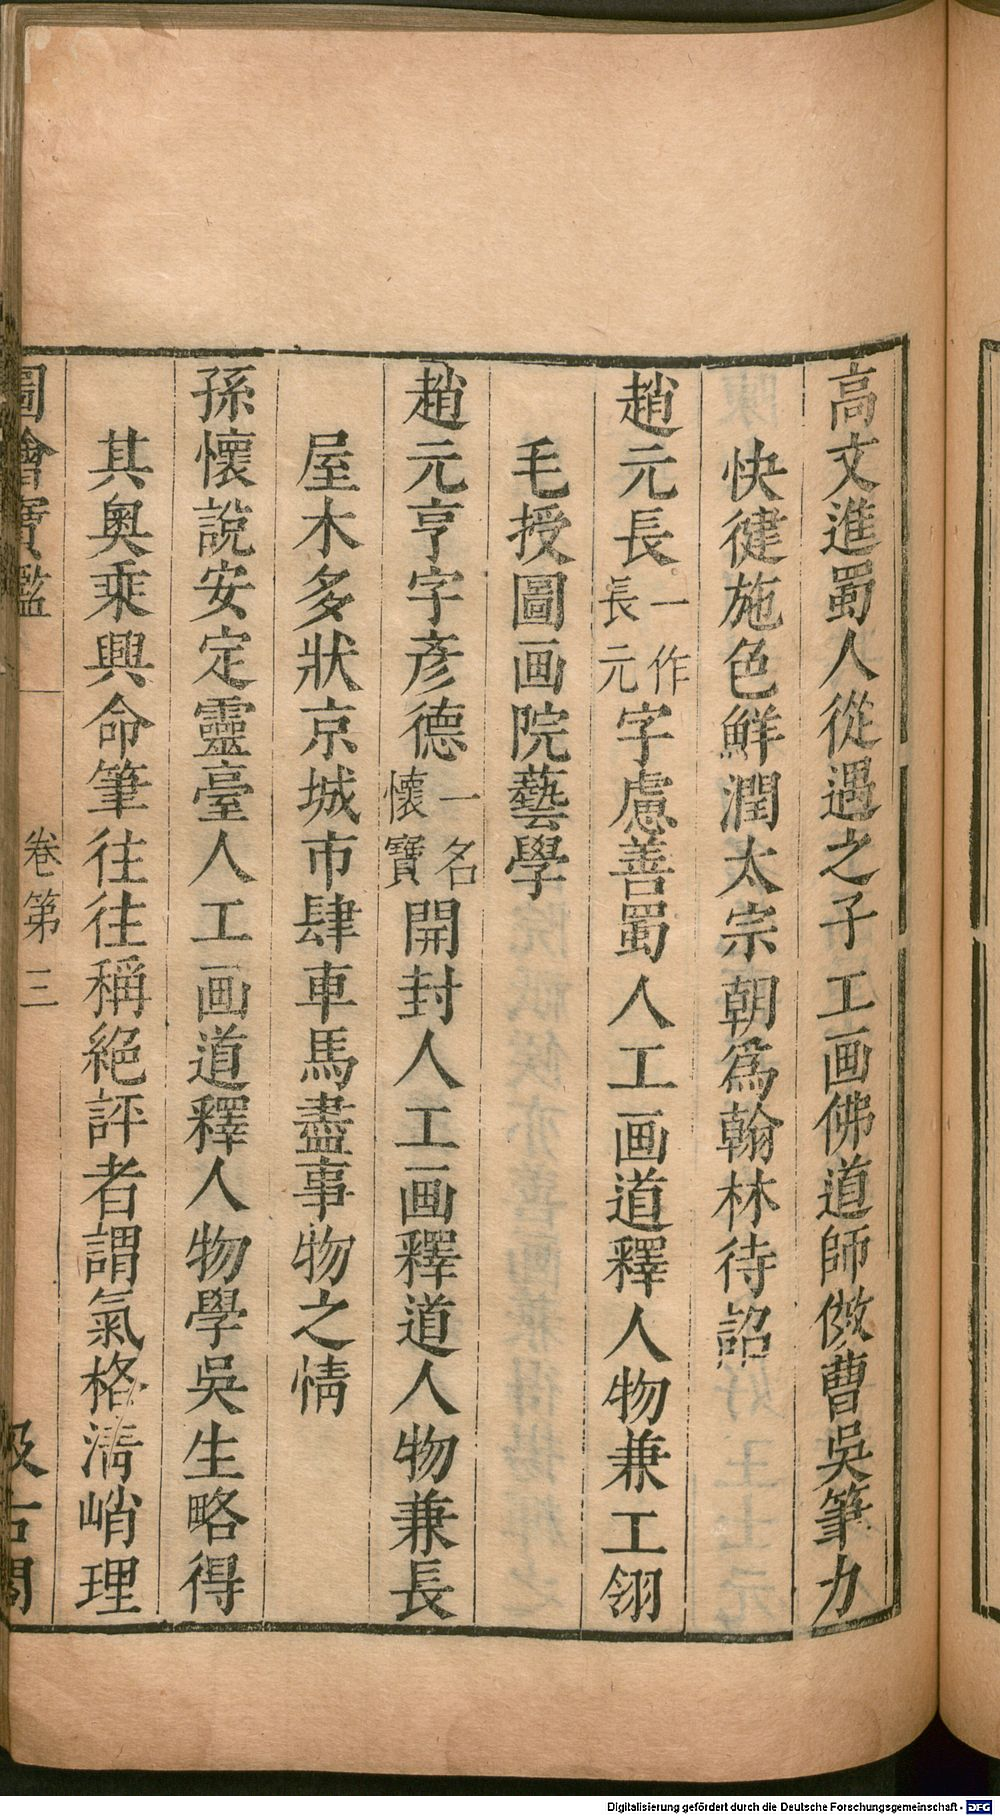 高文進蜀人從遇之子工画佛道師倣曹吳筆力
快健施色鮮潤太宗朝為翰林待詔
趙元長一作長元字慮善蜀人工画道釋人物兼工翎
毛授圖画院藝學
趙元亨字彥德一名懷寶開封人工画釋道人物兼長
屋木多狀京城市肆車馬盡事物之情
孫懷說安定靈臺人工画道釋人物學吳生略得
其奧乘興命筆往往稱絕評者謂氣格清峭理
圖繪寶鑑 卷第三 汲古閣
Digitalisierung gefördert durch die Deutsche Forschungsgemeinschaft - DFG